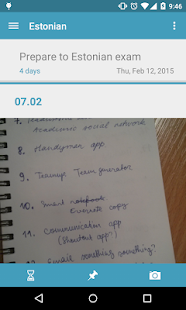 9:46
Estonian
Prepare to Estonian exam
4 days
Thu, Feb 12, 2015
07.02
7.
Academic social network
8. Handyman app
9. Teamup Team generator
10. Smart notebook
Evernote copy
11. Communication app
12. Email something something?